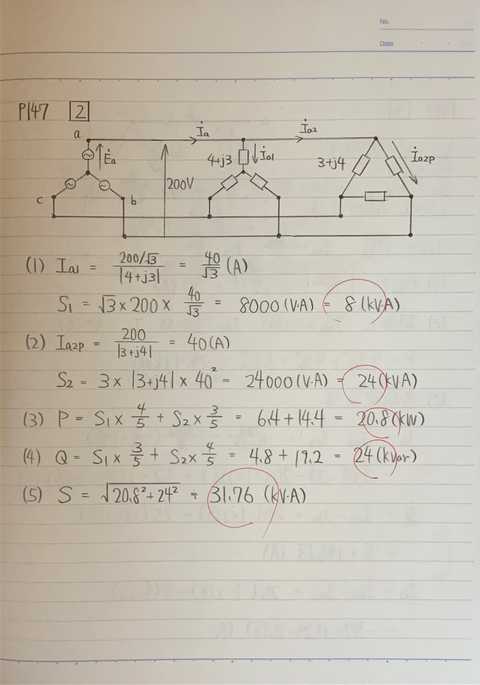 No.
Date
P147 [2]
a
İa
İa2
Ėa
200V
4+j3
İa1
3+j4
İa2P
c
b
(1) Ia1 = 200/√3 / |4+j3| = 40/√3 (A)
S1 = √3 × 200 × 40/√3 = 8000 (V·A) = 8 (kV·A)
(2) Ia2P = 200 / |3+j4| = 40 (A)
S2 = 3 × |3+j4| × 40² = 24000 (V·A) = 24 (kV·A)
(3) P = S1 × 4/5 + S2 × 3/5 = 6.4 + 14.4 = 20.8 (kW)
(4) Q = S1 × 3/5 + S2 × 4/5 = 4.8 + 19.2 = 24 (kvar)
(5) S = √20.8² + 24² = 31.76 (kV·A)